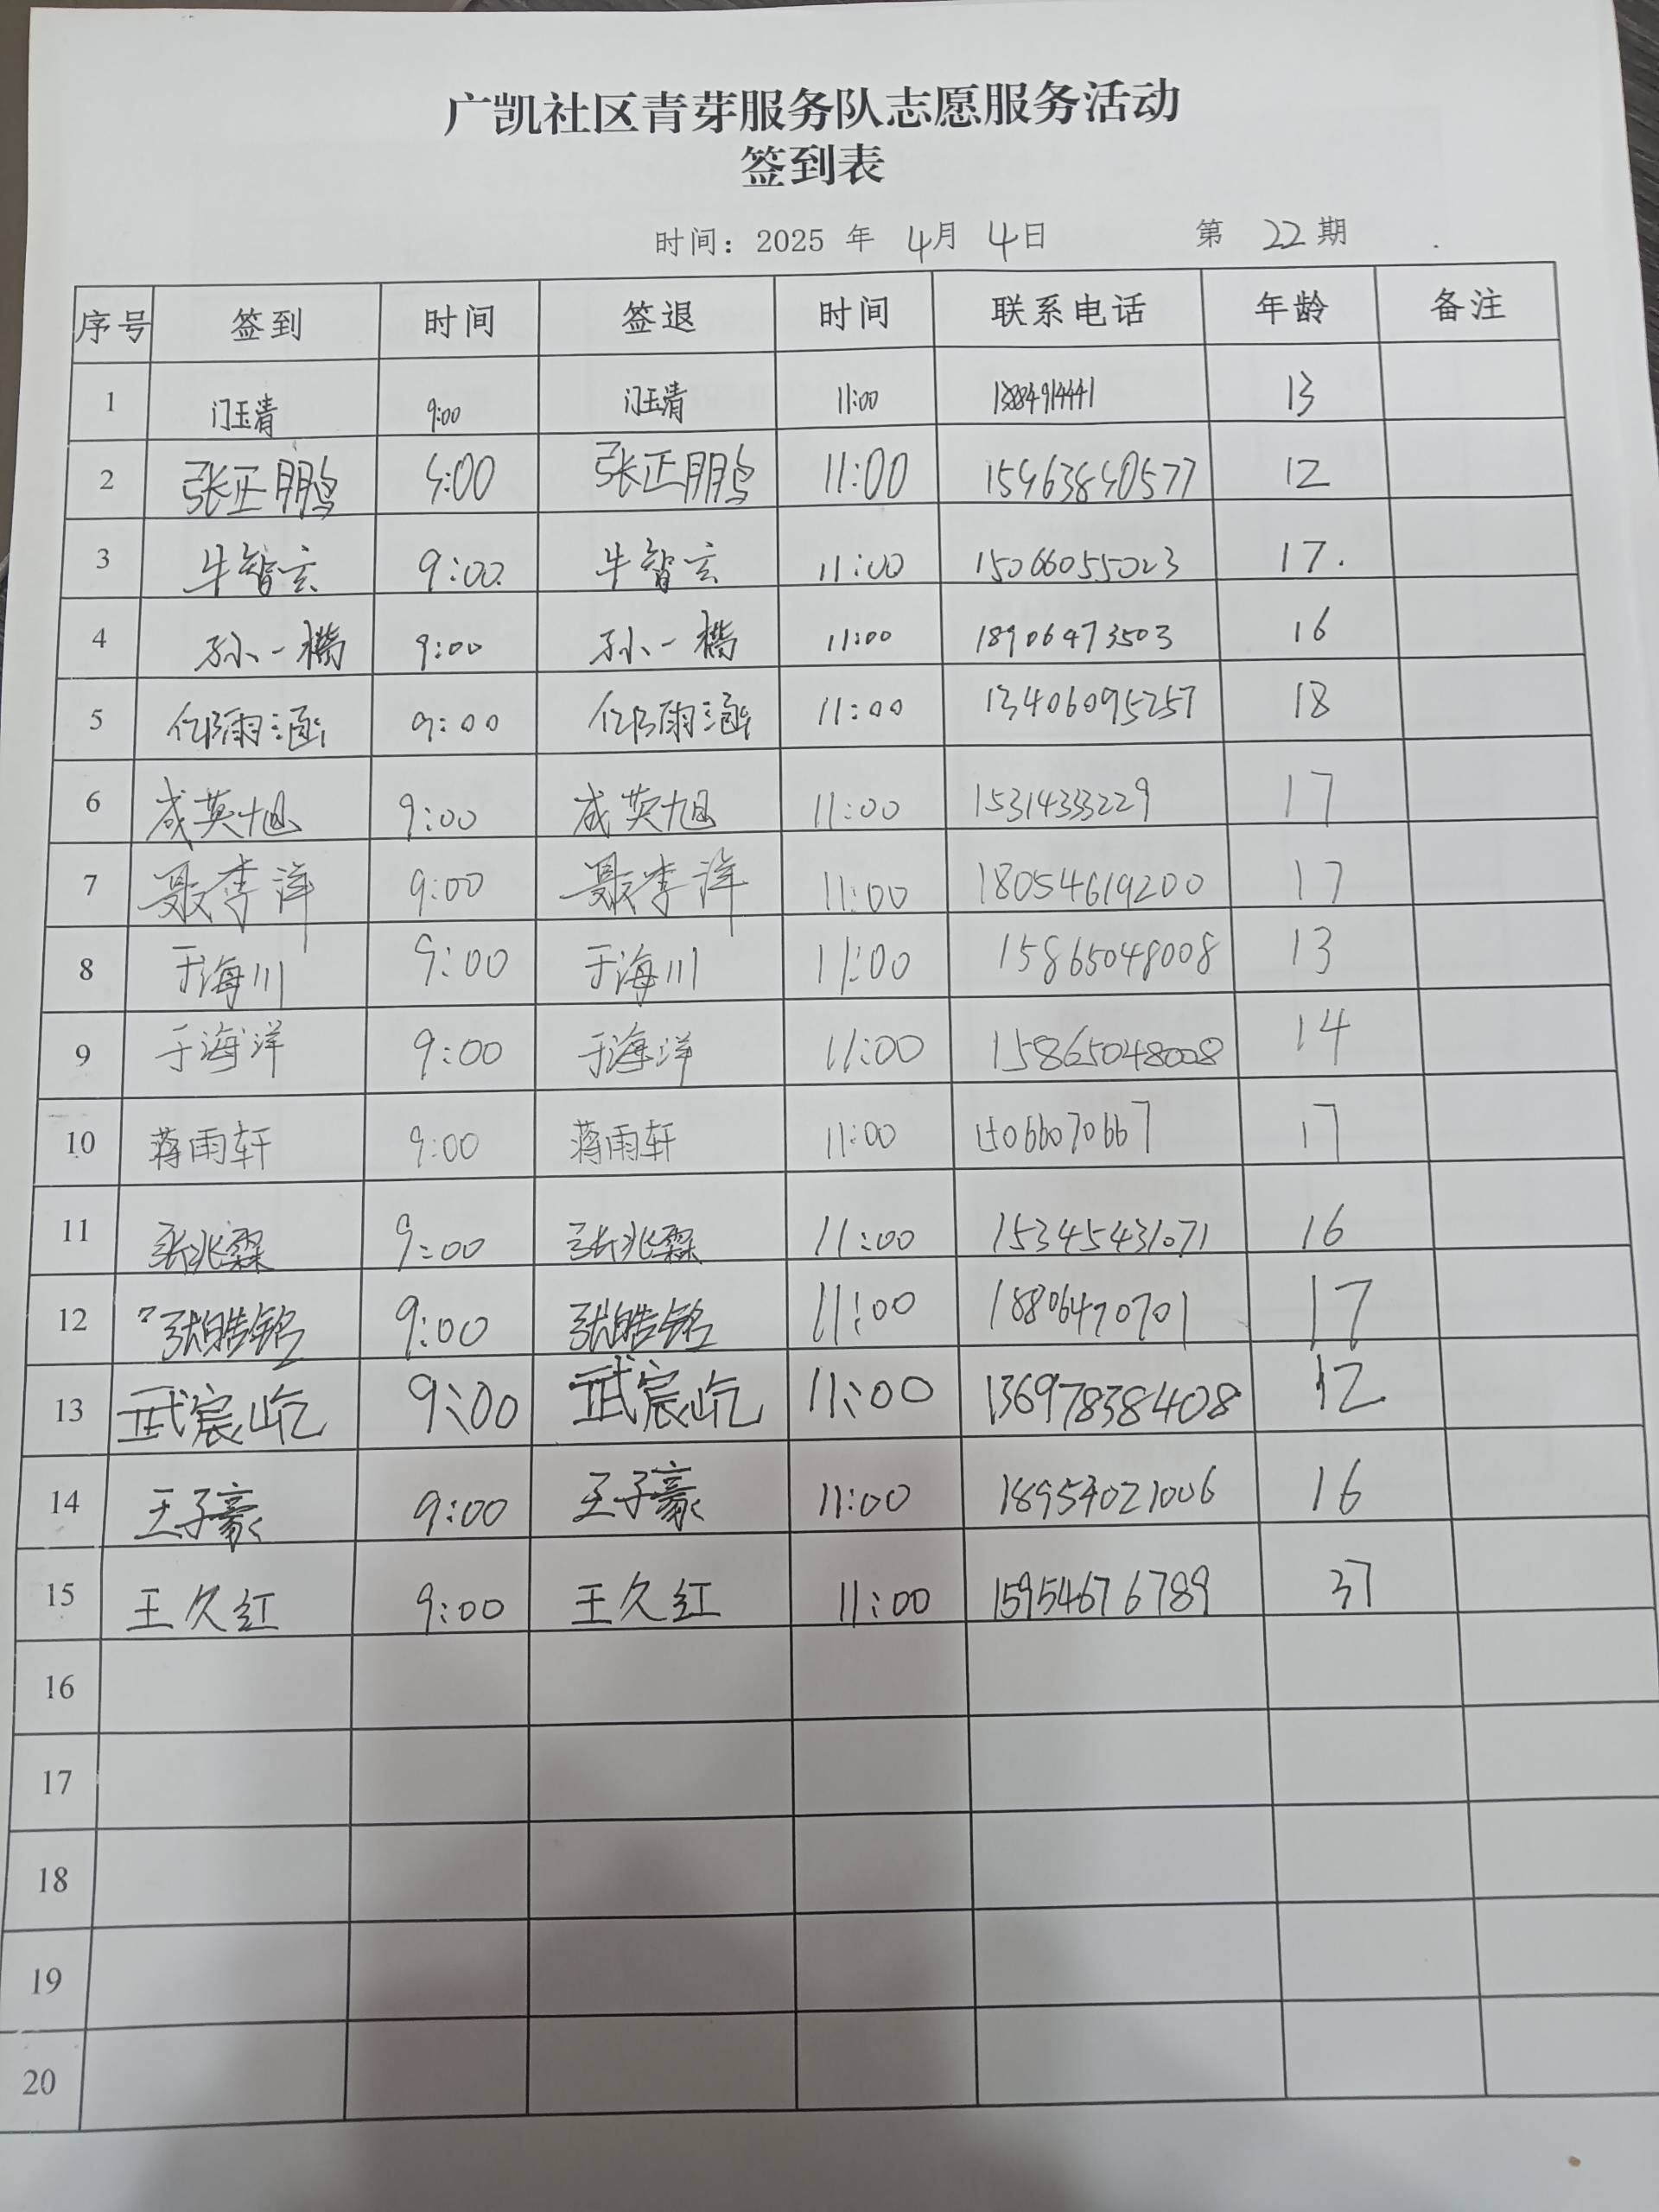 广凯社区青芽服务队志愿服务活动
签到表
时间：2025 年 4月 4日 第 22 期
序号 签到 时间 签退 时间 联系电话 年龄 备注
1 门玉清 9:00 门玉清 11:00 13
2 张正鹏 9:00 张正鹏 11:00 15963890577 12
3 牛智玄 9:00 牛智玄 11:00 15066055023 17.
4 孙一 9:00 孙一 11:00 18906473503 16
5 雨涵 9:00 雨涵 11:00 13406095257 18
6 成英旭 9:00 成英旭 11:00 15314333229 17
7 聂李洋 9:00 聂李洋 11:00 18054619200 17
8 于海川 9:00 于海川 11:00 15865048008 13
9 于海洋 9:00 于海洋 11:00 15865048008 14
10 蒋雨轩 9:00 蒋雨轩 11:00 15066070667 17
11 张兆霖 9:00 张兆霖 11:00 15345431071 16
12 张皓铭 9:00 张皓铭 11:00 18806470701 17
13 武宸屹 9:00 武宸屹 11:00 13697838408 12
14 王子豪 9:00 王子豪 11:00 18954021006 16
15 王久红 9:00 王久红 11:00 15954676789 37
16
17
18
19
20